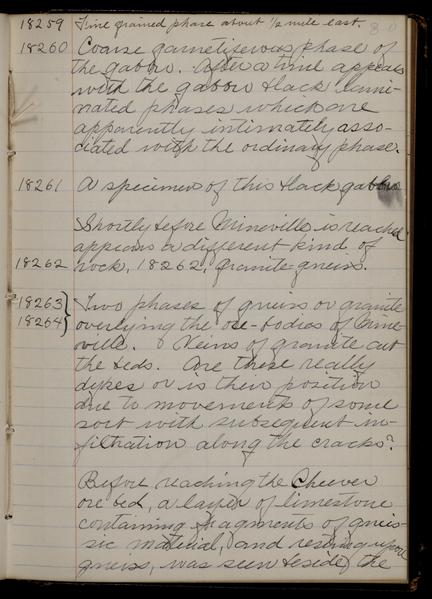 18259 Fine grained phase about 1/2 mile east.
18260 Coarse garnetiferous phase of
the gabbro. After a time appears
with the gabbro black lami-
nated phases which are
apparently intimately asso-
ciated with the ordinary phase.
18261 A specimen of this black gabbro
Shortly before Mineville is reached
appears a different kind of
18262 rock, 18262, granite gneiss.
18263 Two phases of gneiss or granite
18264 overlying the ore-bodies of Mine-
ville. Veins of granite cut
the beds. Are these really
dykes or is their position
due to movements of some
sort with subsequent in-
filtration along the cracks?
Before reaching the Cheever
ore bed, a layer of limestone
containing fragments of gneis-
sic material, and resting upon
gneiss, was seen beside the